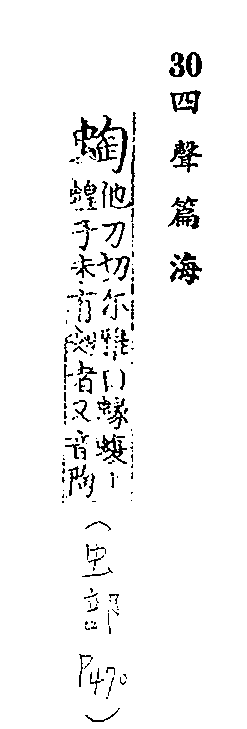 30四聲篇海
蜪他刀切尔雅曰蝝蝮丨
蝗子未有翅者又音陶
(虫部P470)